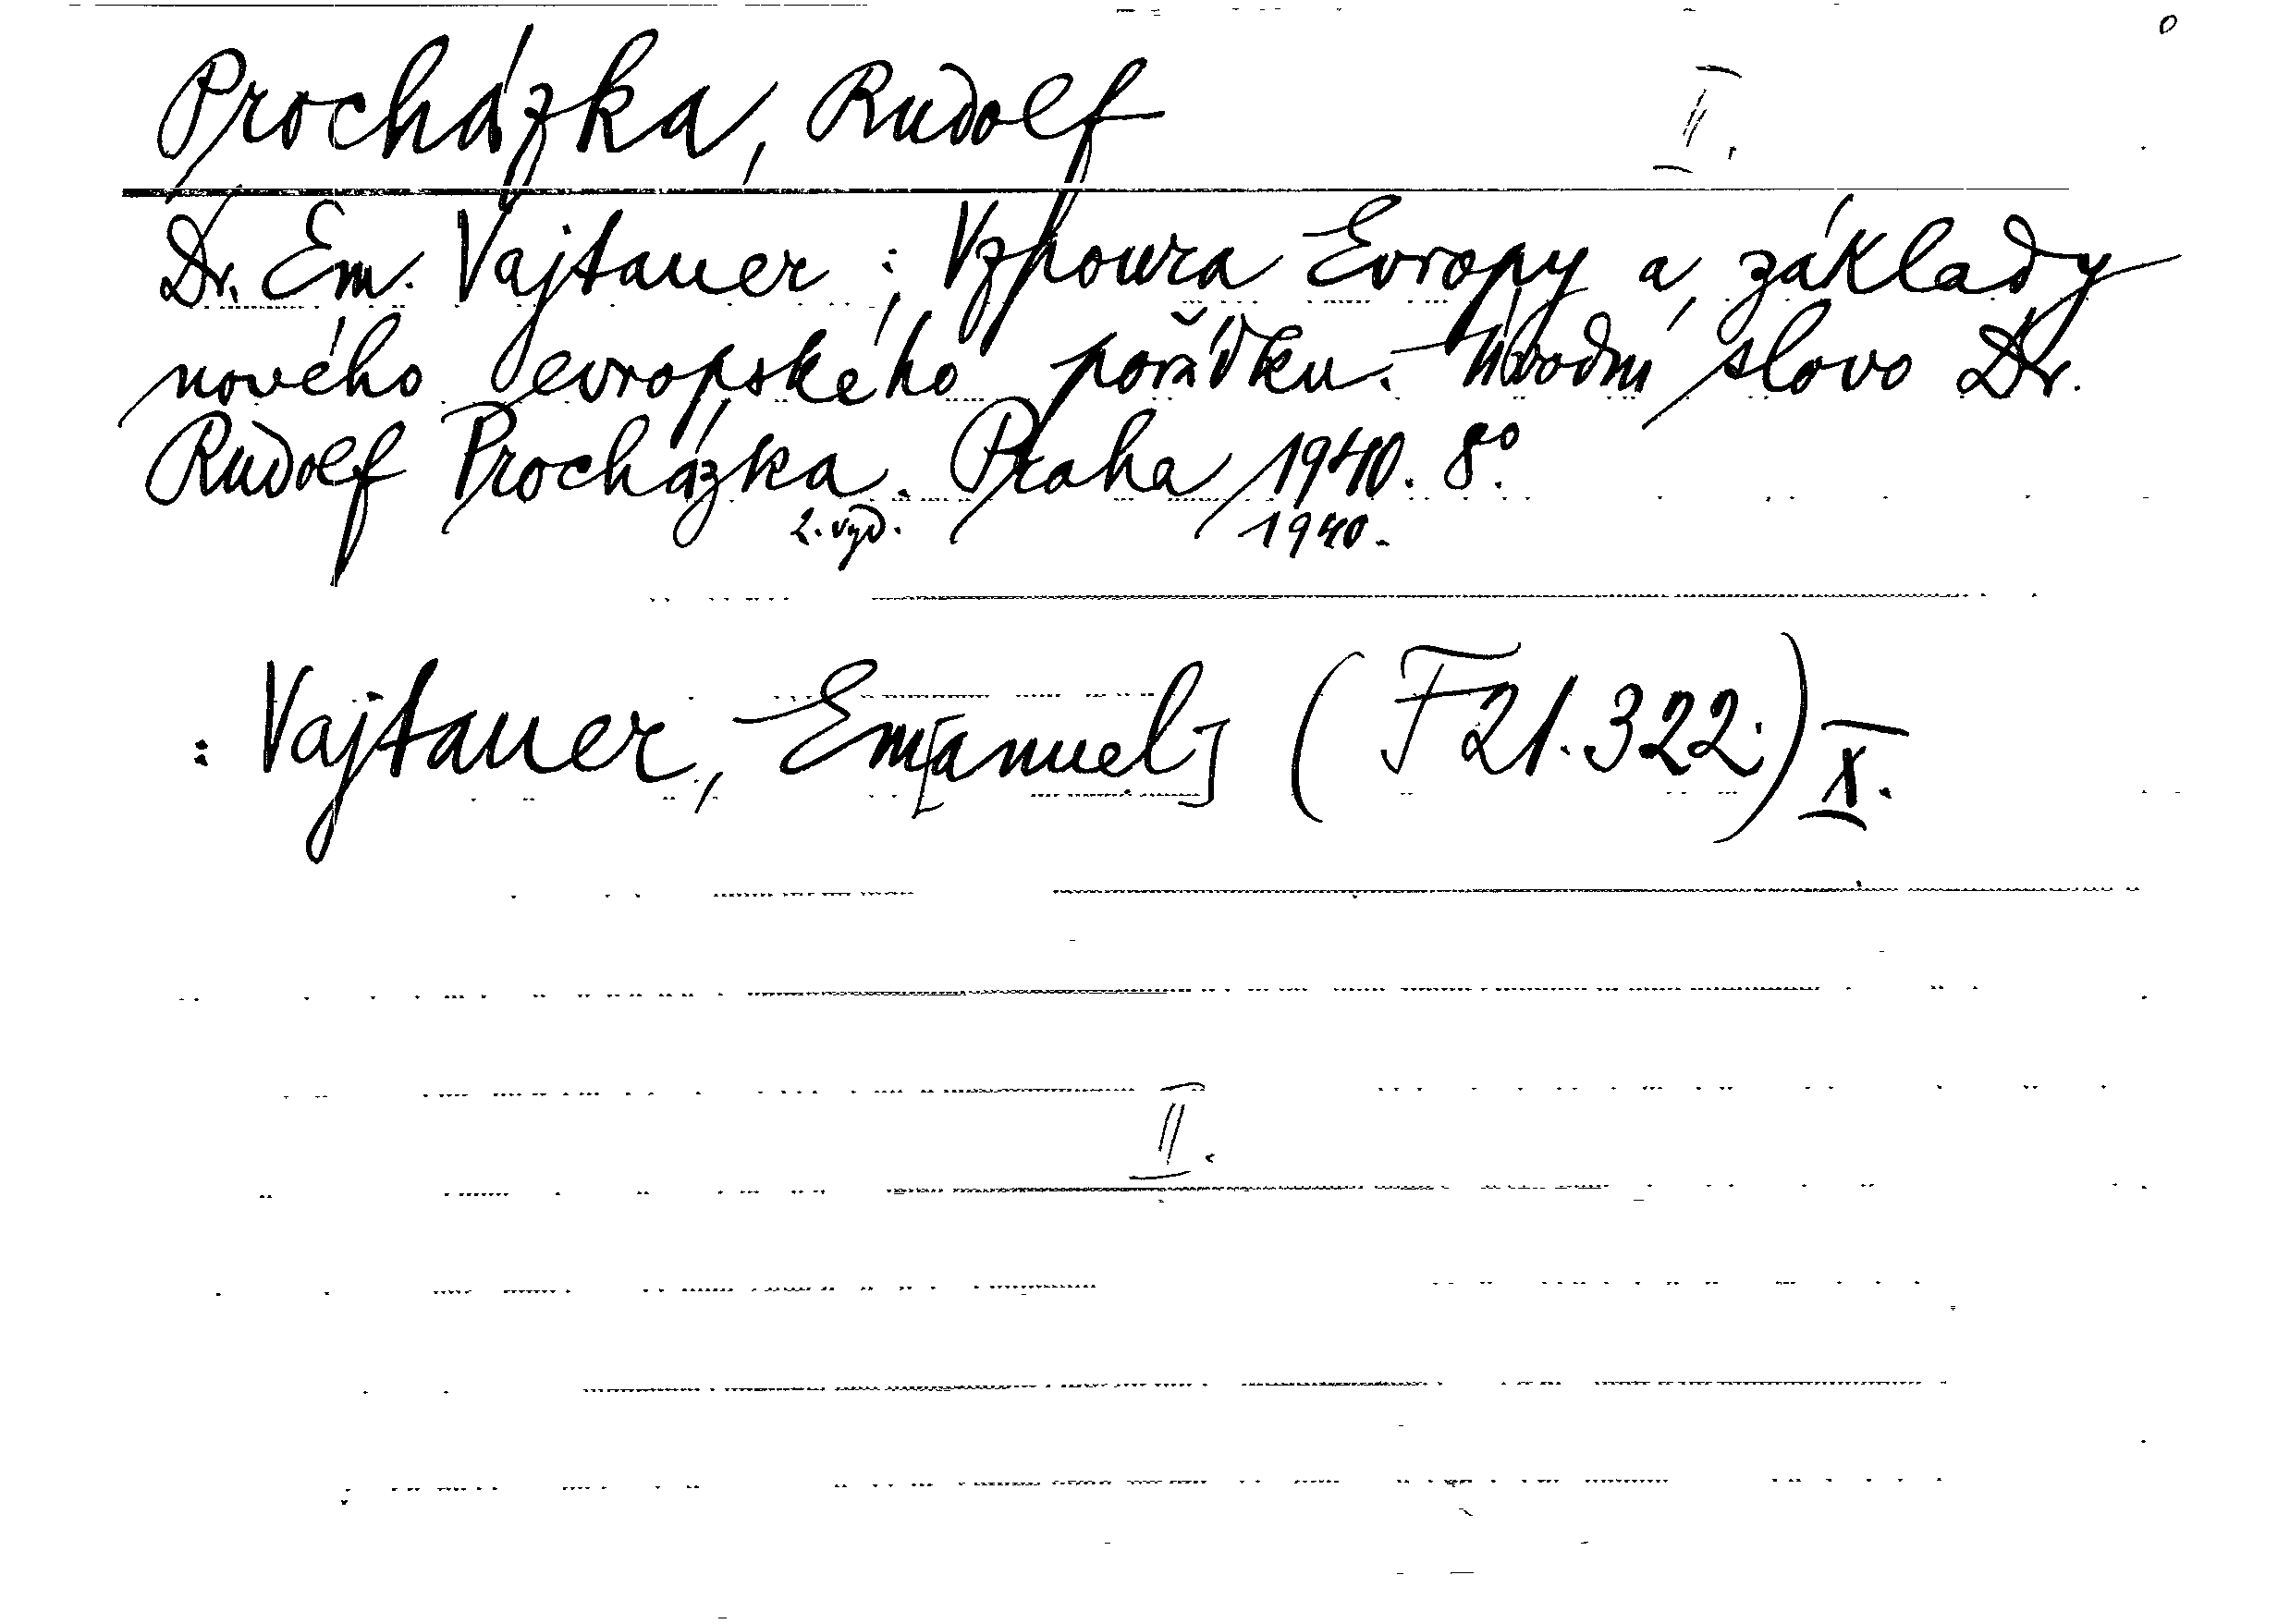 Procházka, Rudolf II.
Dr. Em. Vajtauer: Vzpoura Evropy a základy
nového evropského pořádku. Úvodní slovo Dr.
Rudolf Procházka. Praha 1940. 8º.
2. vyd. 1940.
: Vajtauer, Em[anuel] (F 21.322.) X.
II.